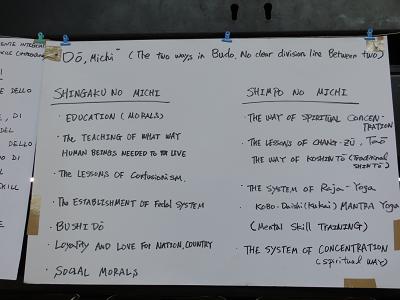 ENTE INTEGRA
DELLO
DEL
DELLO
DI
SKILL
Dō, Michi (The two ways in Budo, No clear division line Between two)
SHINGAKU NO MICHI
· EDUCATION (MORALS)
· The TEACHING OF WHAT WAY
HUMAN BEINGS NEEDED TO LIVE
· The LESSONS OF Confusionism.
· The ESTABLISHMENT OF Fudal SYSTEM
· BUSHI DŌ
· Loyality AND LOVE FOR NATION, COUNTRY
· SOCIAL MORALS
SHIMPO NO MICHI
· THE WAY OF SPIRITUAL CONCEN-
TRATION
· THE LESSONS OF CHANG-ZŪ, Tao
THE WAY OF KOSHINTŌ (Traditional
SHINTŌ)
· THE SYSTEM OF Raja-Yoga
· KOBO-Daishi (Kukai) MANTRA Yoga
(Mental Skill TRAINING)
· THE SYSTEM OF CONCENTRATION
(spiritual WAY)